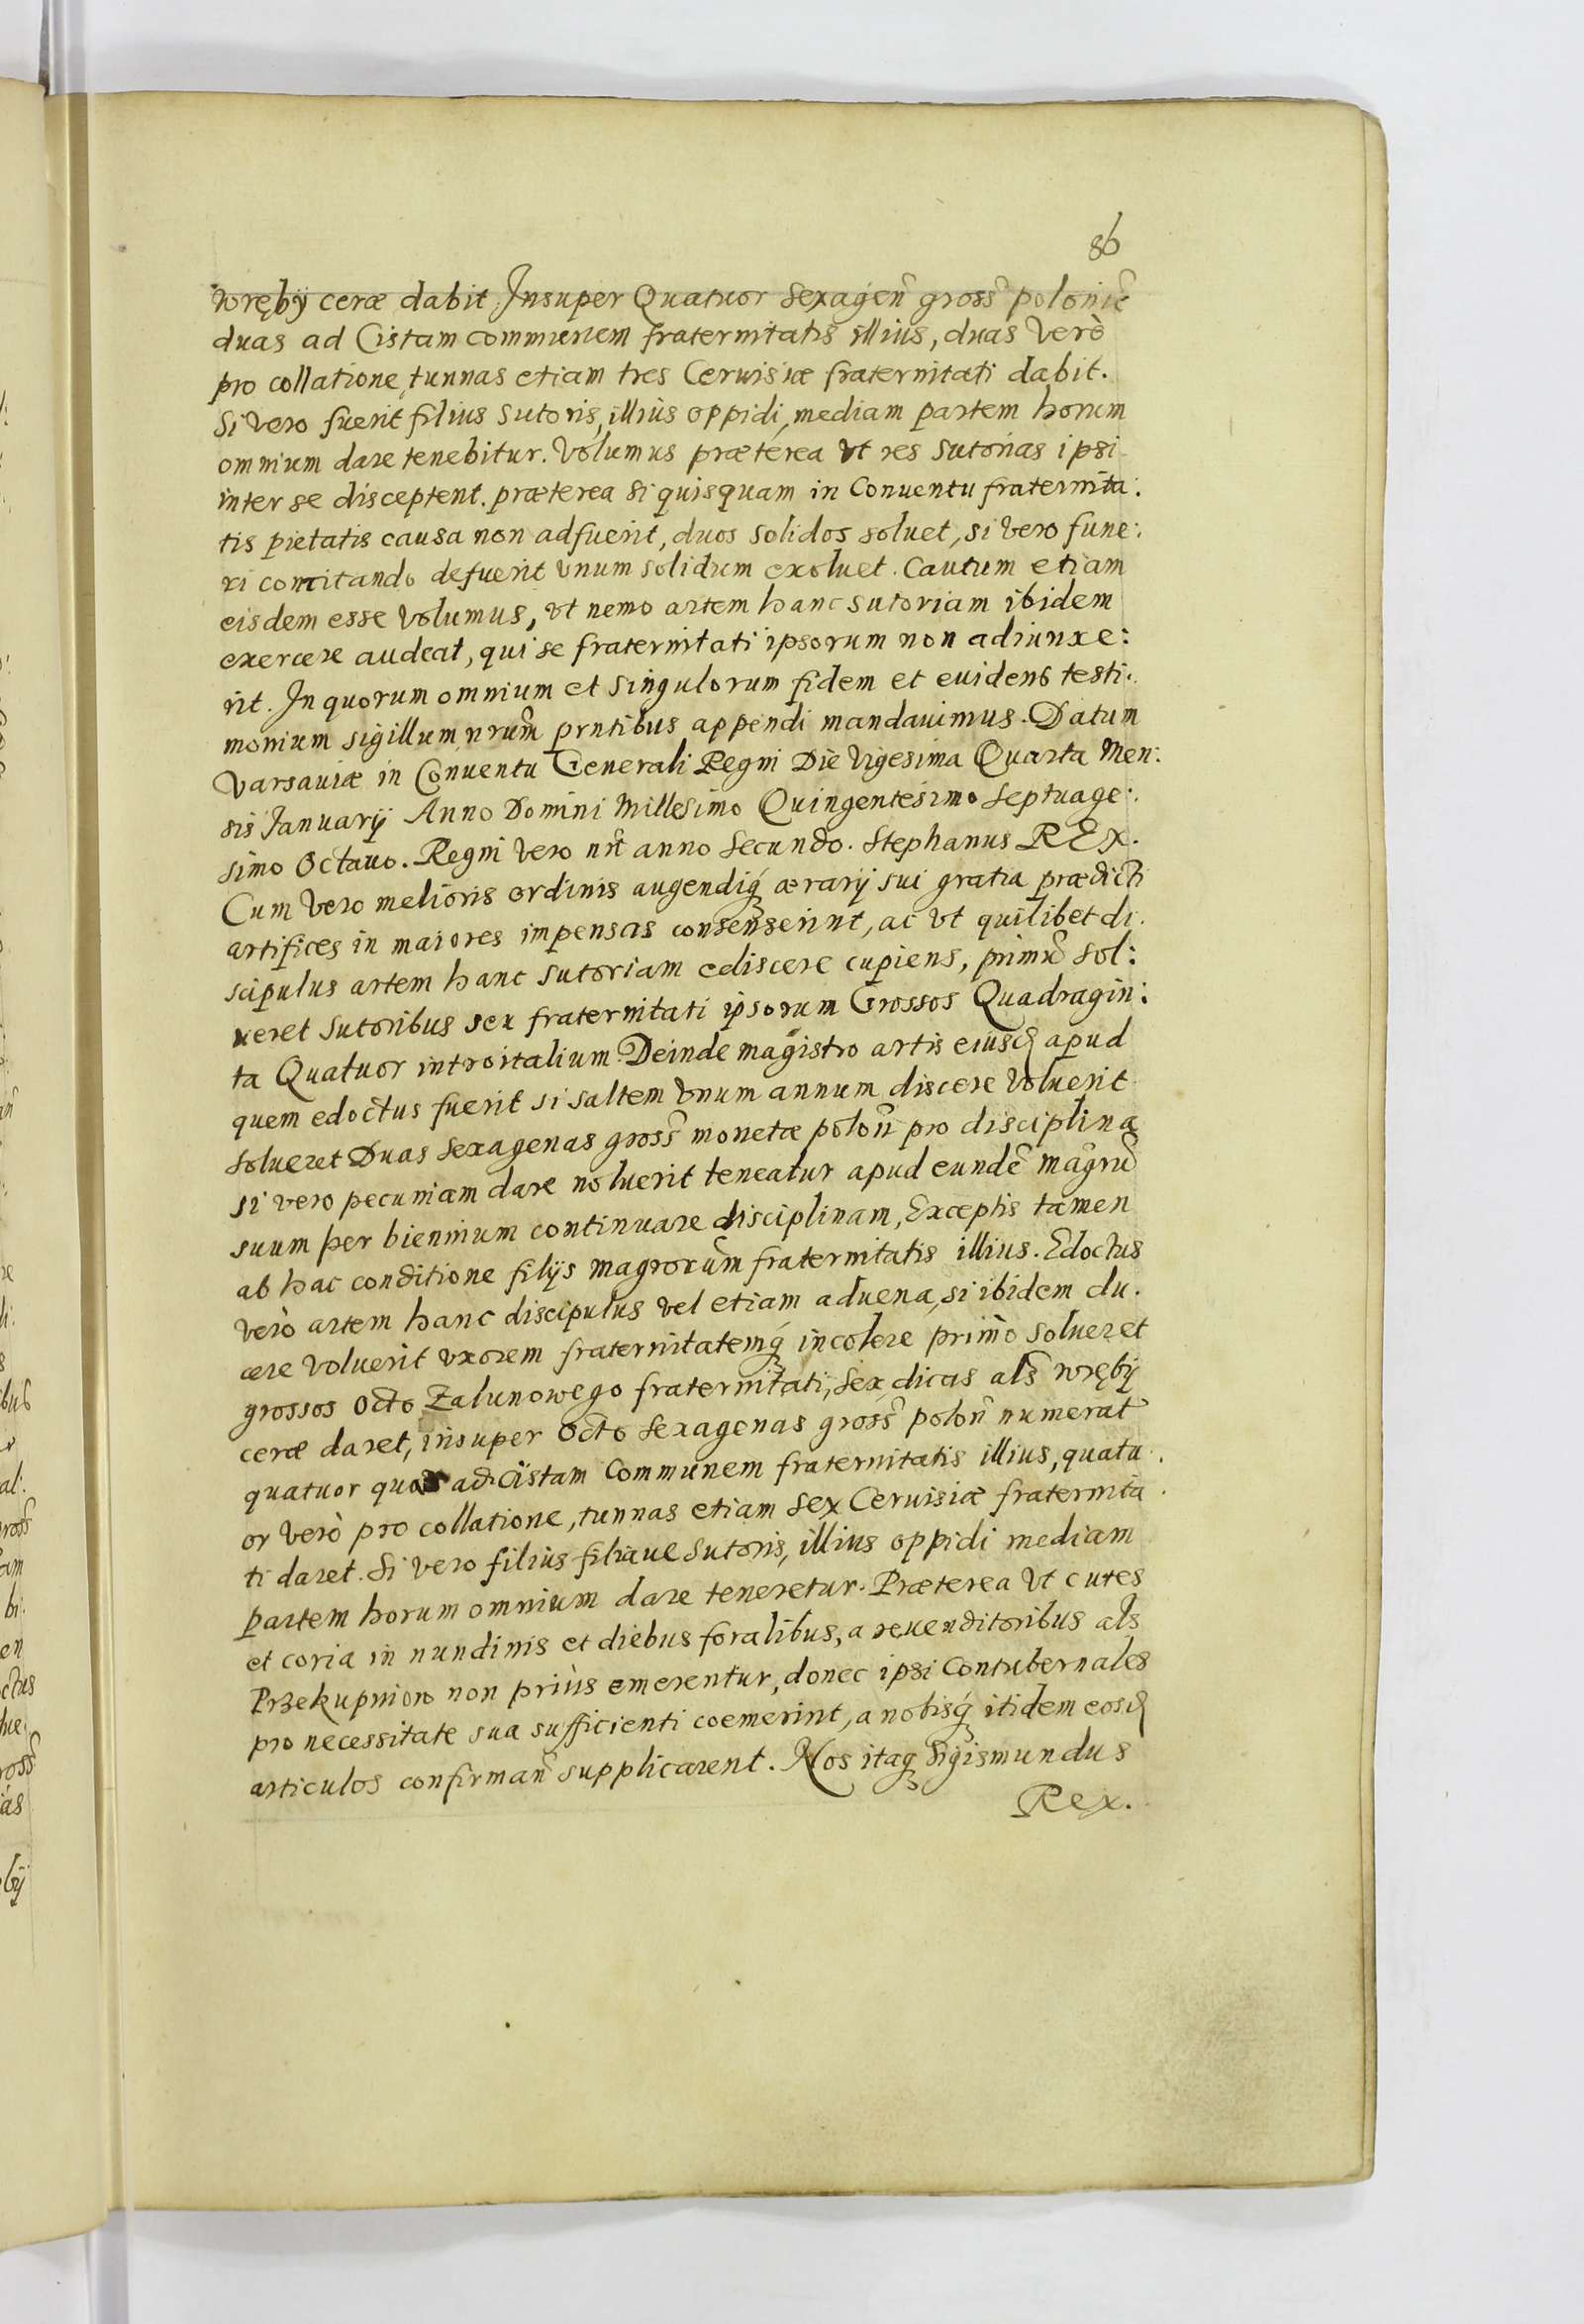 86
wręby ceræ dabit. Insuper Quatuor Sexagen̄ gross̃ polonic̃
duas ad Cistam communem fraternitatis illius, duas verò
pro collatione, tunnas etiam tres Ceruisiæ fraternitati dabit.
Si vero fuerit filius Sutoris, illius oppidi, mediam partem horum
omnium dare tenebitur. Volumus præterea vt res Sutorias ipsi
inter se disceptent. præterea si quisquam in Conuentu fraternita:
tis pietatis causa non adfuerit, duos solidos soluet, si vero fune:
ri comitando defuerit vnum solidum exoluet. Cautum etiam
eisdem esse volumus, vt nemo artem hanc sutoriam ibidem
exercere audeat, qui se fraternitati ipsorum non adiunxe:
rit. In quorum omnium et singulorum fidem et euidens testi:
monium sigillum nrum̃ prntibus appendi mandauimus. Datum
Varsauiæ in Conuentu Generali Regni Die Vigesima Quarta Men:
sis Ianuarij Anno Domini Millesimo Quingentesimo Septuage:
simo Octauo. Regni vero nri̅ anno Secundo. Stephanus REx.
Cum vero melioris ordinis augendiq́ ærarij sui gratia prædicti
artifices in maiores impensas consenserint, ac vt quilibet di.
scipulus artem hanc sutoriam ediscere cupiens, primũ sol:
ueret Sutoribus seu fraternitati ipsorum Grossos Quadragin:
ta Quatuor introitalium. Deinde magistro artis eiusd̃ apud
quem edoctus fuerit si saltem vnum annum discere voluerit
solueret Duas Sexagenas gross̃ monetæ polon̄ pro disciplina
si vero pecuniam dare noluerit teneatur apud eundẽ magrũ
suum per biennium continuare disciplinam, Exceptis tamen
ab hac conditione filijs magrorum̃ fraternitatis illius. Edoctus
verò artem hanc discipulus vel etiam aduena, si ibidem du.
cere voluerit vxorem fraternitatemq́ incolere primò solueret
grossos Octo Zalunowego fraternitati, Sex dicas als̃ wręby
ceræ daret, insuper Octo Sexagenas gross̃ polon̄ numerat̃
quatuor quas ad Cistam Communem fraternitatis illius, quatu.
or verò pro collatione, tunnas etiam Sex Ceruisiæ fraternita.
ti daret. Si vero filius filiaue Sutoris, illius oppidi mediam
partem horum omnium dare teneretur. Præterea vt cutes
et coria in nundinis et diebus foralibus, a reuenditoribus als
Przekupniow non priùs emerentur, donec ipsi Contubernales
pro necessitate sua sufficienti coemerint, a nobisq́ itidem eosd̃
articulos confirman̄ supplicarent. Nos itaq Sigismundus
Rex.